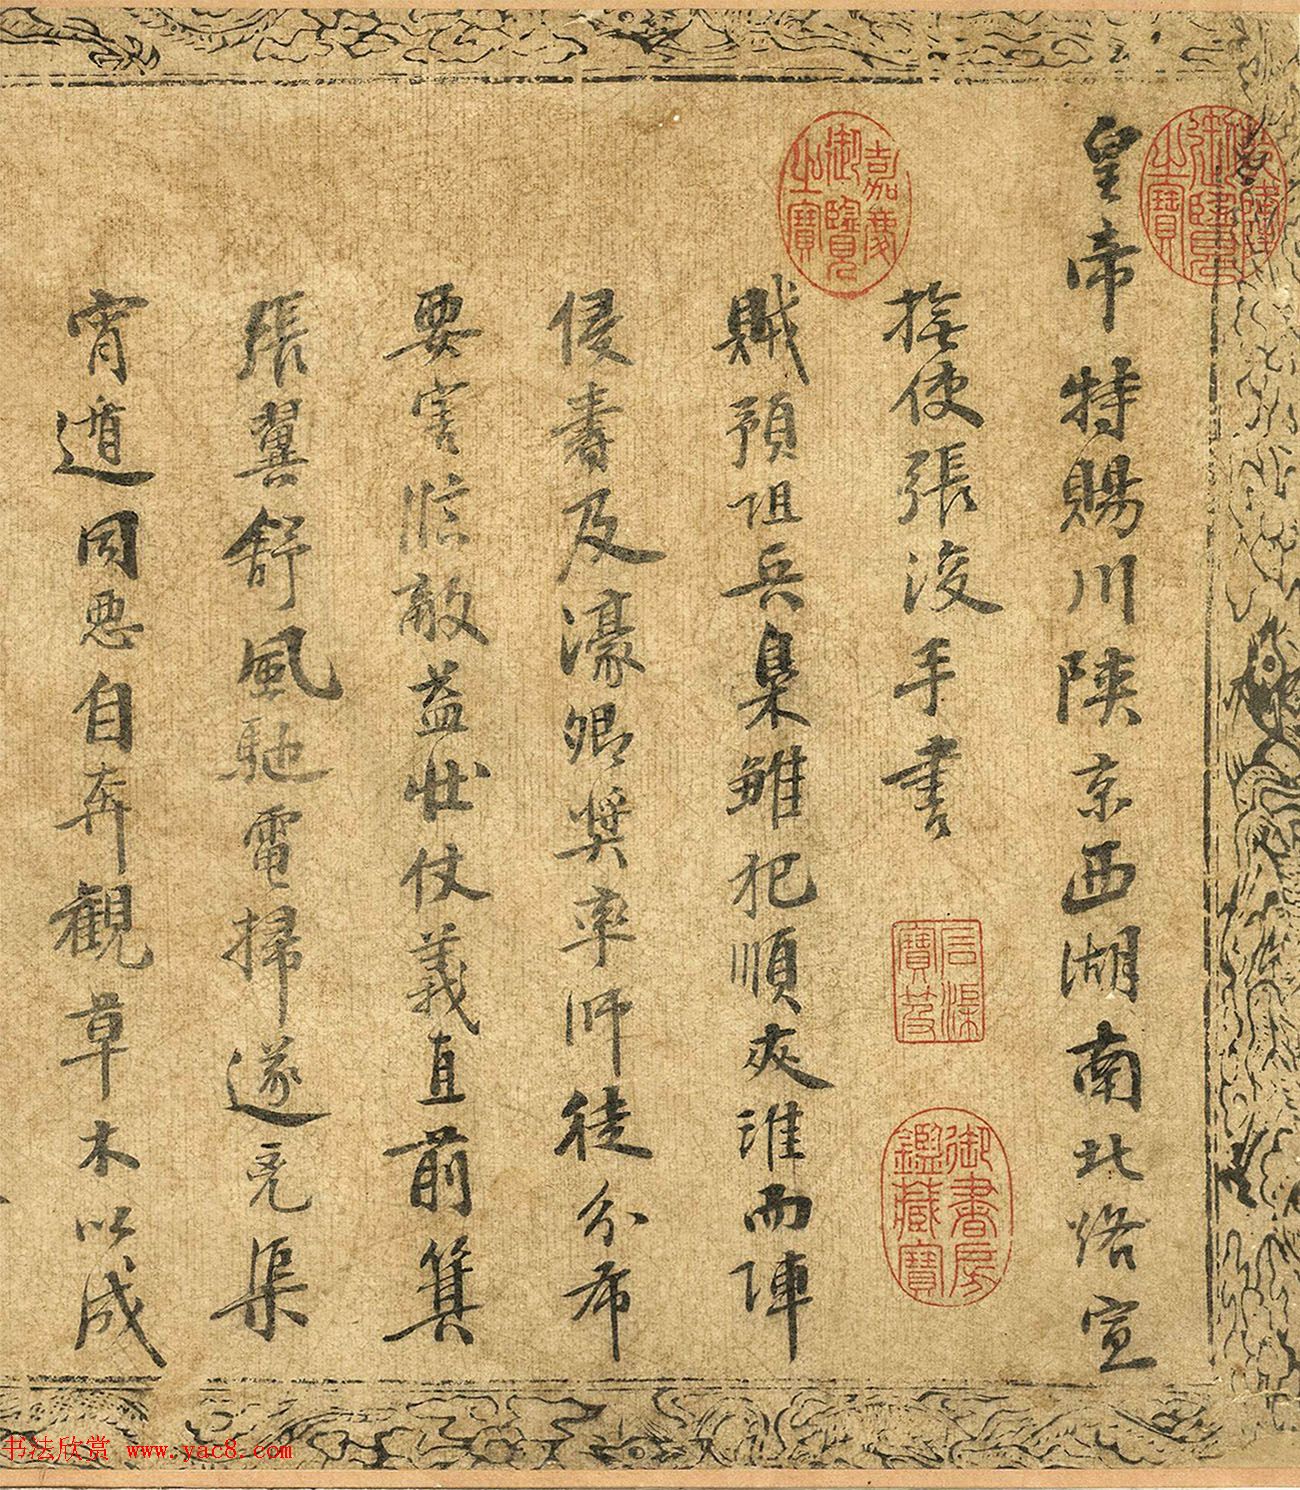 皇帝特賜川陝京西湖南北路宣
撫使張浚手書
賊預阻兵梟雛犯順夾淮而陣
侵壽及濠卿獎率師徒分布
要害臨敵益壯仗義直前箕
張翼舒風馳電掃遂克渠
宵遁同惡自奔觀草木以成
嘉慶御覽之寶
御書房鑑藏寶
书法欣赏 www.yac8.com